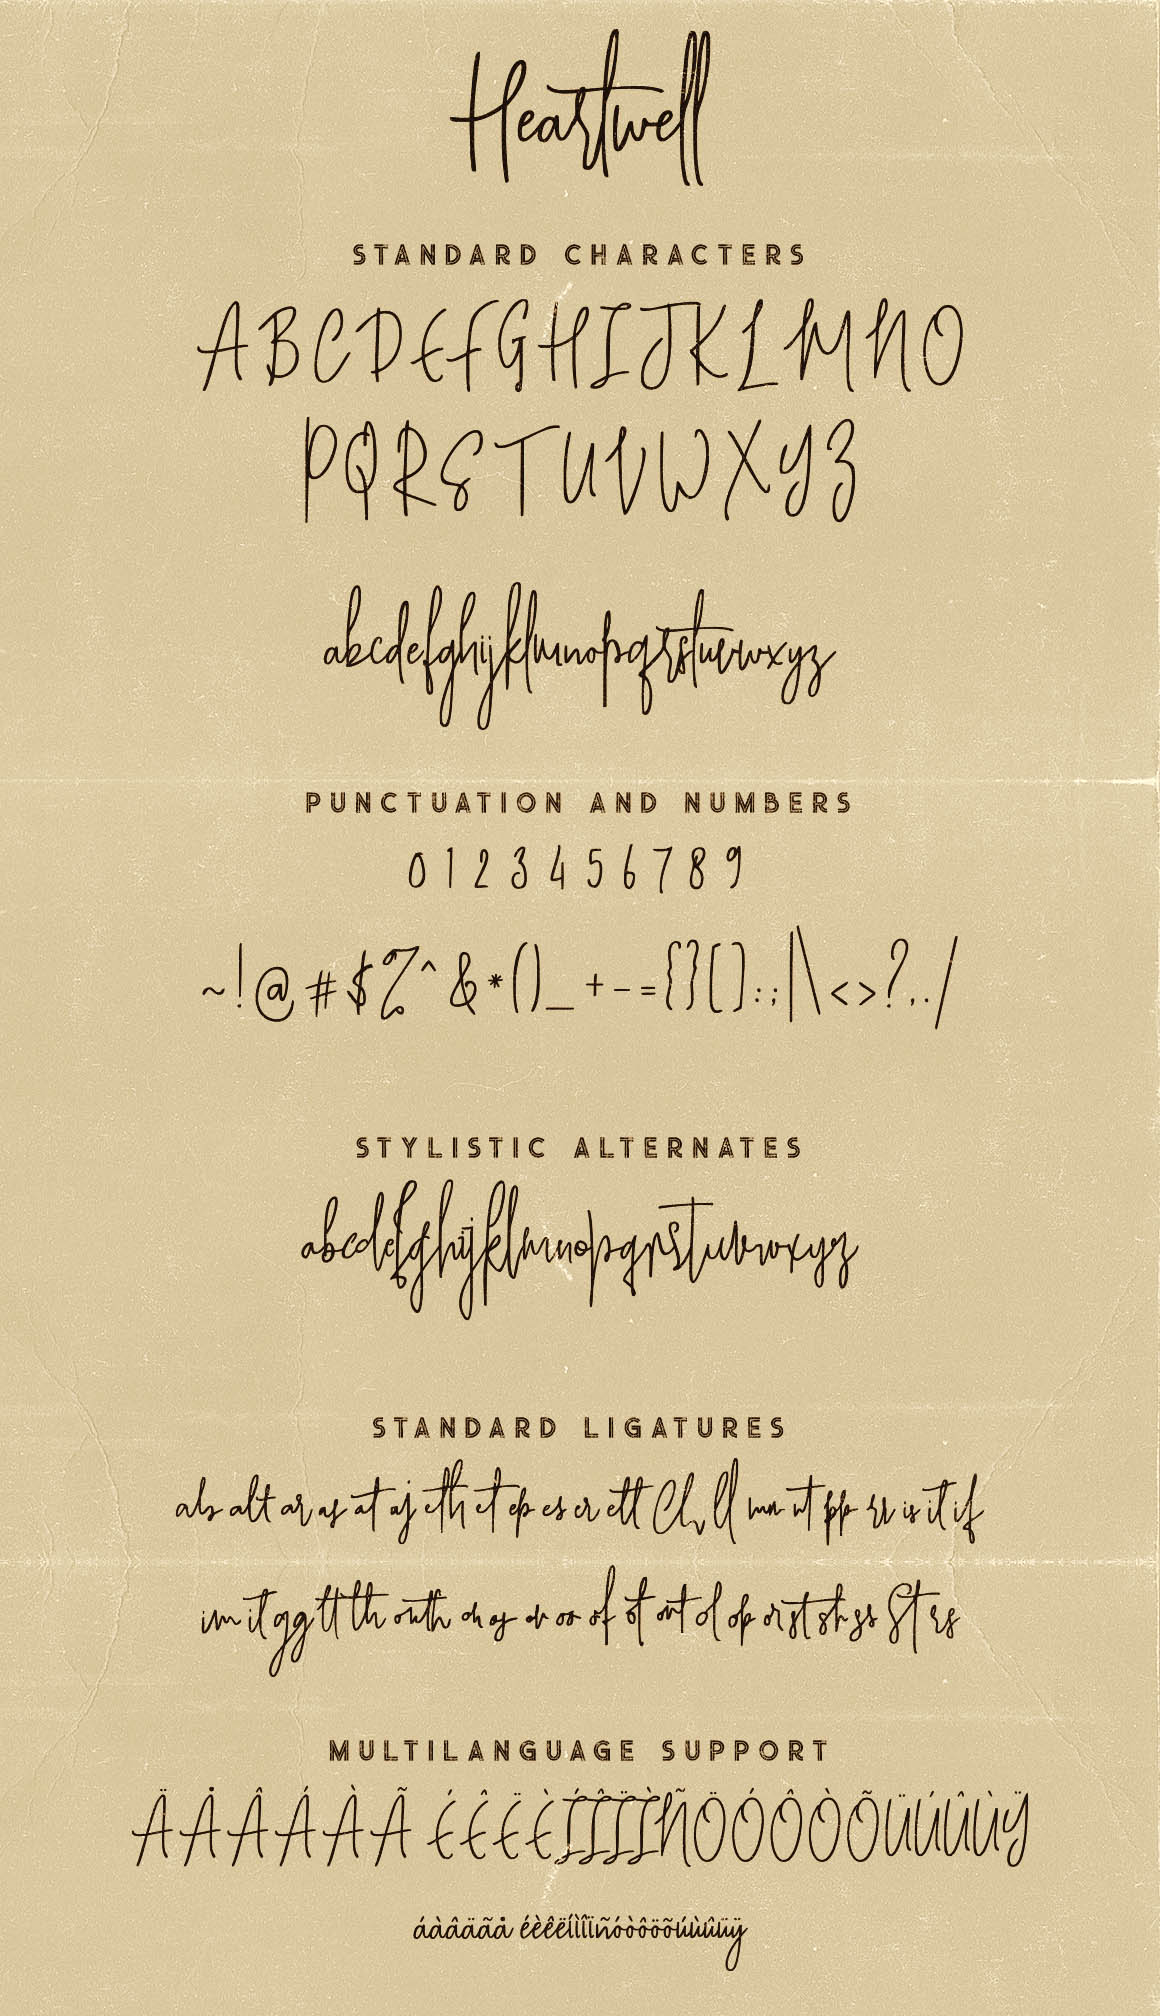 Heartwell
STANDARD CHARACTERS
ABCDEFGHIJKLMNO
PQRSTUVWXYZ
abcdefghijklmnopqrstuvwxyz
PUNCTUATION AND NUMBERS
0 1 2 3 4 5 6 7 8 9
~!@#$%^&*()_+-={}[]:;|\<>?,./
STYLISTIC ALTERNATES
abcdefghijklmnopqrstuvwxyz
STANDARD LIGATURES
ab alt ar as at aj eth et ep es er ett Ch ll mn nt pp rr is it if
im it gg tt th outh on os or oo of ot out ol op orst sh ss St rs
MULTILANGUAGE SUPPORT
ÄÅÂÁÀÃ ÉÊËÈÍÎÏÌÑÖÓÔÒÕÜÚÛÙŸ
áàâäãå éèêëíìîïñóòôöõúùûüÿ